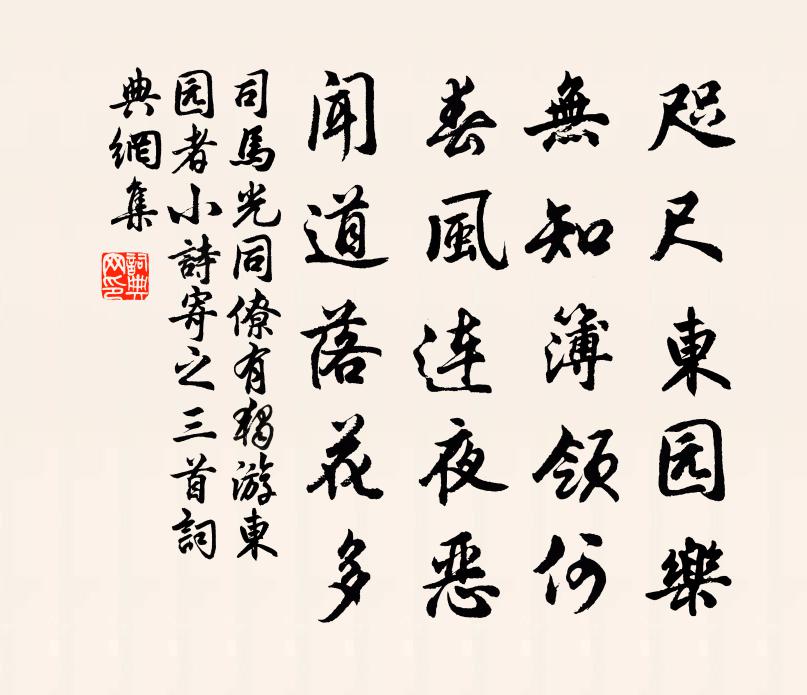 咫尺東园樂
無知簿領何
春風连夜恶
聞道落花多
司馬光同僚有独游東
园者小詩寄之三首詞
典網集
詞典网印